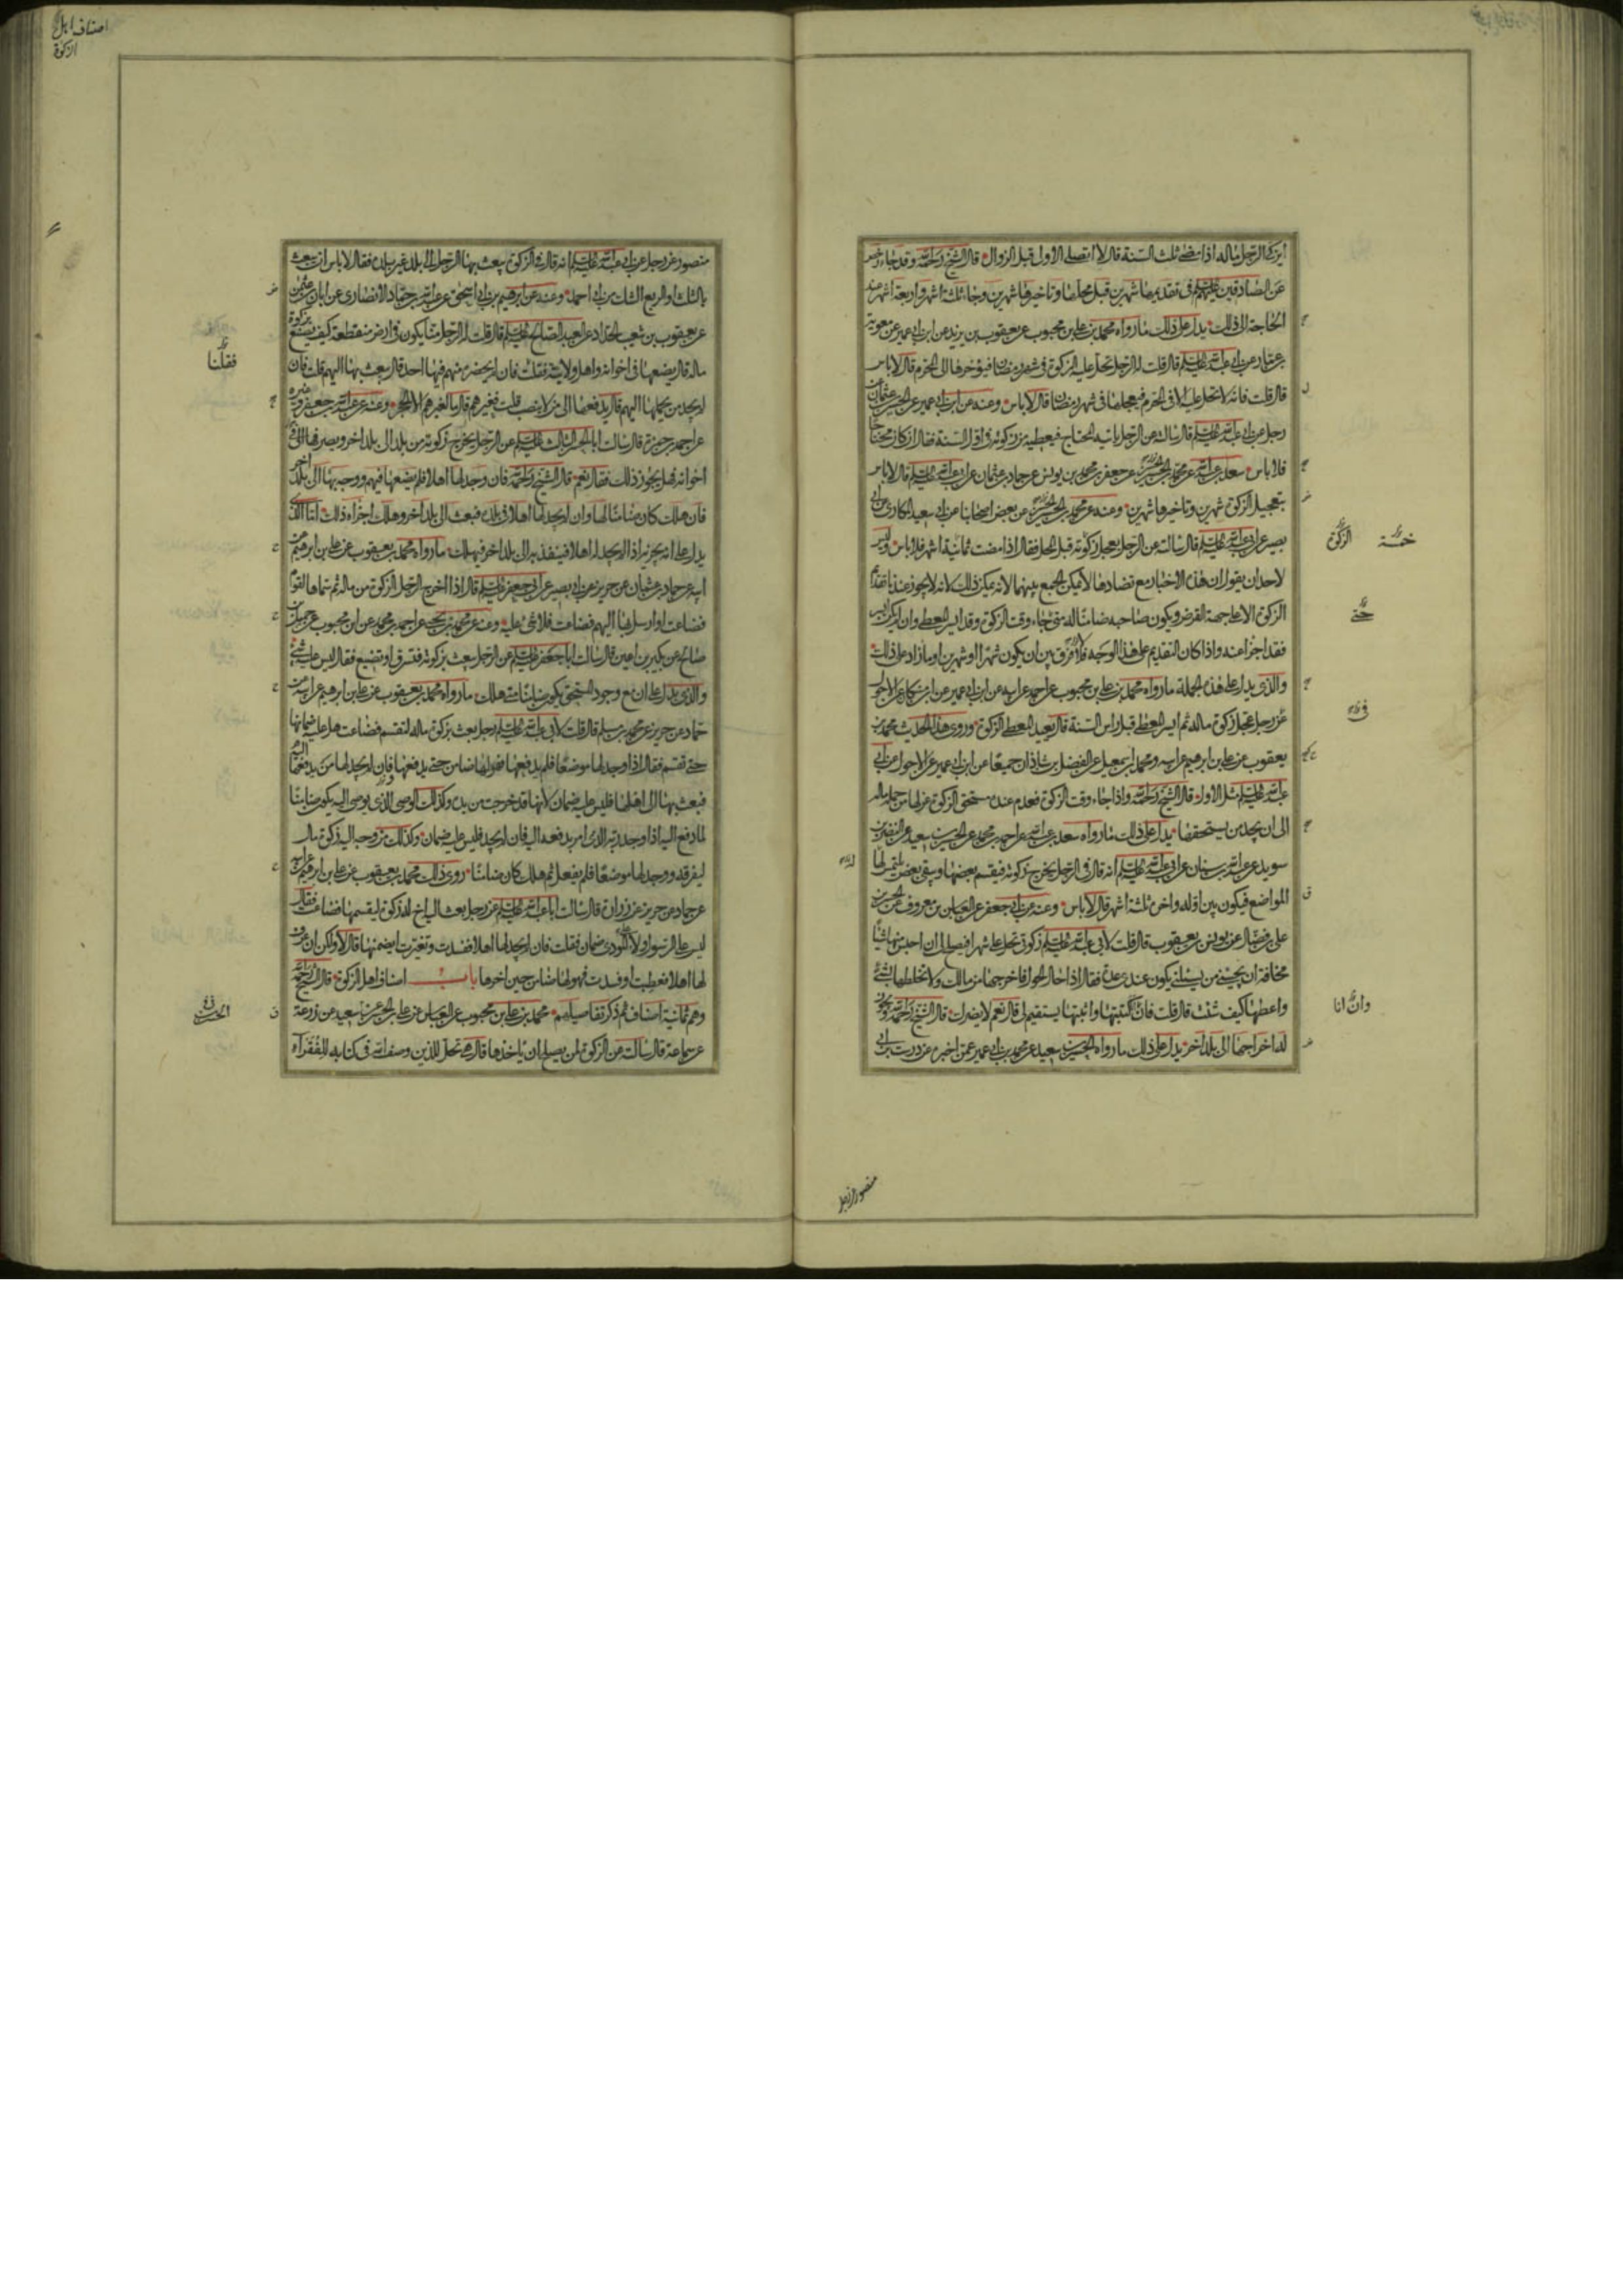 ايزكى الرجل ماله اذا مضى ثلث السنة قال لا اتصلى الاولى قبل الزوال قال الشيخ رحمه الله وقد جاء رخص
عن الصادقين عليهم السلام فى تقديمها شهرين قبل محلها وتاخيرها شهرين وجاء ثلثة اشهر واربعة اشهر عند
الحاجة الى ذلك يدل على ذلك ما رواه محمد بن على بن محبوب عن يعقوب بن يزيد عن ابن ابى عمير عن معوية
بن عمار عن ابى عبد الله عليه السلام قال قلت له الرجل تحل عليه الزكوة فى شهر رمضان فيؤخرها الى المحرم قال لا باس
قال قلت فانه لا تحل عليه الا فى المحرم فيعجلها فى شهر رمضان قال لا باس وعنه عن ابن ابى عمير عن الحسين بن عثمان عن
رجل عن ابى عبد الله عليه السلام قال سالته عن الرجل ياتيه المحتاج فيعطيه من زكوته فى اول السنة فقال ان كان محتاجا
فلا باس سعد بن عبد الله عن محمد بن الحسين عن جعفر بن محمد بن يونس عن حماد بن عثمان عن ابى عبد الله عليه السلام قال لا باس
بتعجيل الزكوة شهرين وتاخيرها شهرين وعنه عن محمد بن الحسين عن بعض اصحابنا عن ابى سعيد المكارى عن ابى
بصير عن ابى عبد الله عليه السلام قال سالته عن الرجل يعجل زكوته قبل المحل فقال اذا مضت ثمانية اشهر فلا باس وليس
خمسة الزكوة
لاحد ان يقول ان هذه الاخبار مع تضادها لا يمكن الجمع بينهما لانه يمكن ذلك لانه لا يجوز عندنا تقديم
الزكوة الا على جهة القرض ويكون صاحبه ضامنا له متى جاء وقت الزكوة وقد ايسر المعطى وان لم يكن ايسر
حتى
فقد اجزا عنه واذا كان التقديم على هذا الوجه فلا فرق بين ان يكون شهرا او شهرين او ما زاد على ذلك
والذى يدل على هذه الجملة ما رواه محمد بن على بن محبوب عن احمد عن ابيه عن ابن ابى عمير عن ابن مسكان عن الاحول
فى
عن رجل عجل زكوة ماله ثم ايسر المعطى قبل راس السنة قال يعيد المعطى الزكوة وروى هذا الحديث محمد بن
يعقوب عن على بن ابرهيم عن ابيه ومحمد بن اسمعيل عن الفضل بن شاذان جميعا عن ابن ابى عمير عن الاحول عن ابى
عبد الله عليه السلام مثل الاول قال الشيخ رحمه الله واذا جاء وقت الزكوة فعدم عنده مستحق الزكوة عزلها من جملة ماله
الى ان يجد من يستحقها يدل على ذلك ما رواه سعد بن عبد الله عن احمد بن محمد عن الحسين بن سعيد عن النضر بن
سويد عن عبد الله بن سنان عن ابى عبد الله عليه السلام انه قال فى الرجل يخرج زكوته فيقسم بعضها ويبقى بعض يلتمس لها
المواضع فيكون بين اوله واخره ثلثة اشهر قال لا باس وعنه عن ابى جعفر عن العباس بن معروف عن الحسن بن
على بن فضال عن يونس بن يعقوب قال قلت لابى عبد الله عليه السلام زكوتى تحل على شهرا فيصلح لى ان احبس منها شيئا
مخافة ان يجيئنى من يسئلنى يكون عندى عدة فقال اذا حال الحول فاخرجها من مالك ولا تخلطها بشئ
واعطها كيف شئت قال قلت فان انا كتبتها واثبتها يستقيم لى قال نعم لا يضرك قال الشيخ رحمه الله ويجوز
وان انا
له اخراجها الى بلد اخر يدل على ذلك ما رواه الحسين بن سعيد عن محمد بن ابى عمير عمن اخبره عن درست بن ابى
منصور عن رجل
اصناف اهل
الزكوة
منصور عن رجل عن ابى عبد الله عليه السلام انه قال فى الزكوة يبعث بها الرجل الى بلد غير بلده فقال لا باس ان يبعث
بالثلث او الربع الشك من ابى احمد وعنه عن ابرهيم بن ابى اسحق عن عبد الله بن حماد الانصارى عن ابان بن عثمن
عن يعقوب بن شعيب الحداد عن العبد الصالح عليه السلام قال قلت له الرجل منا يكون فى ارض منقطعة كيف يصنع بزكوة
فقلنا
ماله قال يضعها فى اخوانه واهل ولايته فقلت فان لم يحضره منهم فيها احد قال يبعث بها اليهم قلت فان
لم يجد من يحملها اليهم قال يدفعها الى من لا ينصب قلت فغيرهم قال ما لغيرهم الا الحجر وعنه عن عبد الله بن جعفر وغيره
عن احمد بن حمزة قال سالت ابا الحسن الثالث عليه السلام عن الرجل يخرج زكوته من بلد الى بلد اخر ويصرفها الى
اخوانه فهل يجوز ذلك فقال نعم قال الشيخ رحمه الله فان وجد لها اهلا فلم يضعها فيهم ووجه بها الى بلد اخر
فان هلك كان ضامنا لها وان لم يجد لها اهلا فى بلده فبعث الى بلد اخر وهلك اجزاه ذلك اما الذى
يدل على انه يجزيه اذا لم يجد له اهلا فينفذه الى بلد اخر فيهلك ما رواه محمد بن يعقوب عن على بن ابرهيم عن
ابيه عن حماد بن عثمان عن حريز عن ابى بصير عن ابى جعفر عليه السلام قال اذا اخرج الرجل الزكوة من ماله ثم سماها لقوم
فضاعت او ارسل بها اليهم فضاعت فلا شئ عليه وعنه عن محمد بن يحيى عن احمد بن محمد عن ابن محبوب عن جميل بن
صالح عن بكير بن اعين قال سالت ابا جعفر عليه السلام عن الرجل يبعث بزكوته فتسرق او تضيع فقال ليس عليه شئ
والذى يدل على ان مع وجود المستحق يكون ضامنا متى هلك ما رواه محمد بن يعقوب عن على بن ابرهيم عن ابيه عن
حماد عن حريز عن محمد بن مسلم قال قلت لابى عبد الله عليه السلام رجل بعث بزكوة ماله لتقسم فضاعت هل عليه ضمانها
حتى تقسم فقال اذا وجد لها موضعا فلم يدفعها فهو لها ضامن حتى يدفعها وان لم يجد لها من يدفعها اليه
فبعث بها الى اهلها فليس عليه ضمان لانها قد خرجت من يده وكذلك الوصى الذى يوصى اليه يكون ضامنا
لما دفع اليه اذا وجد ربه الذى امر بدفعه اليه فان لم يجد فليس عليه ضمان وكذلك من وجه اليه زكوة مال
ليفرقه ووجد لها موضعا فلم يفعل ثم هلك كان ضامنا روى ذلك محمد بن يعقوب عن على بن ابرهيم عن ابيه
عن حماد عن حريز عن زرارة قال سالت ابا عبد الله عليه السلام عن رجل بعث اليه اخ له زكوة ليقسمها فضاعت فقال
ليس على الرسول ولا على المؤدى ضمان فقلت فان لم يجد لها اهلا ففسدت وتغيرت ايضمنها قال لا ولكن ان عرف
لها اهلا فعطبت او فسدت فهو لها ضامن حين اخرها باب اصناف اهل الزكوة قال الشيخ رحمه الله
وهم ثمانية اصناف ثم ذكر تفاصيلهم محمد بن على بن محبوب عن العباس عن على بن الحسن عن سعيد عن زرعة
الحسين
عن سماعة قال سالته عن الزكوة لمن يصلح ان ياخذها قال هى تحل للذين وصف الله فى كتابه للفقراء